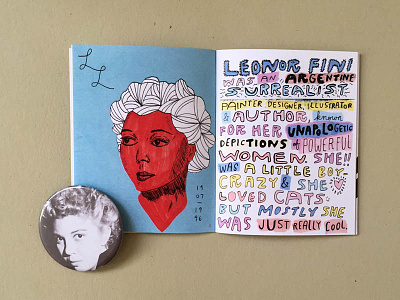 L
L
19
07
—
19
96
LEONOR FINI
WAS AN ARGENTINE
SURREALIST
PAINTER DESIGNER, ILLUSTRATOR
& AUTHOR, known
FOR HER UNAPOLOGETIC
DEPICTIONS of POWERFUL
WOMEN. SHE!!
WAS A LITTLE BOY-
CRAZY & SHE
LOVED CATS.
BUT MOSTLY SHE
WAS JUST REALLY COOL.